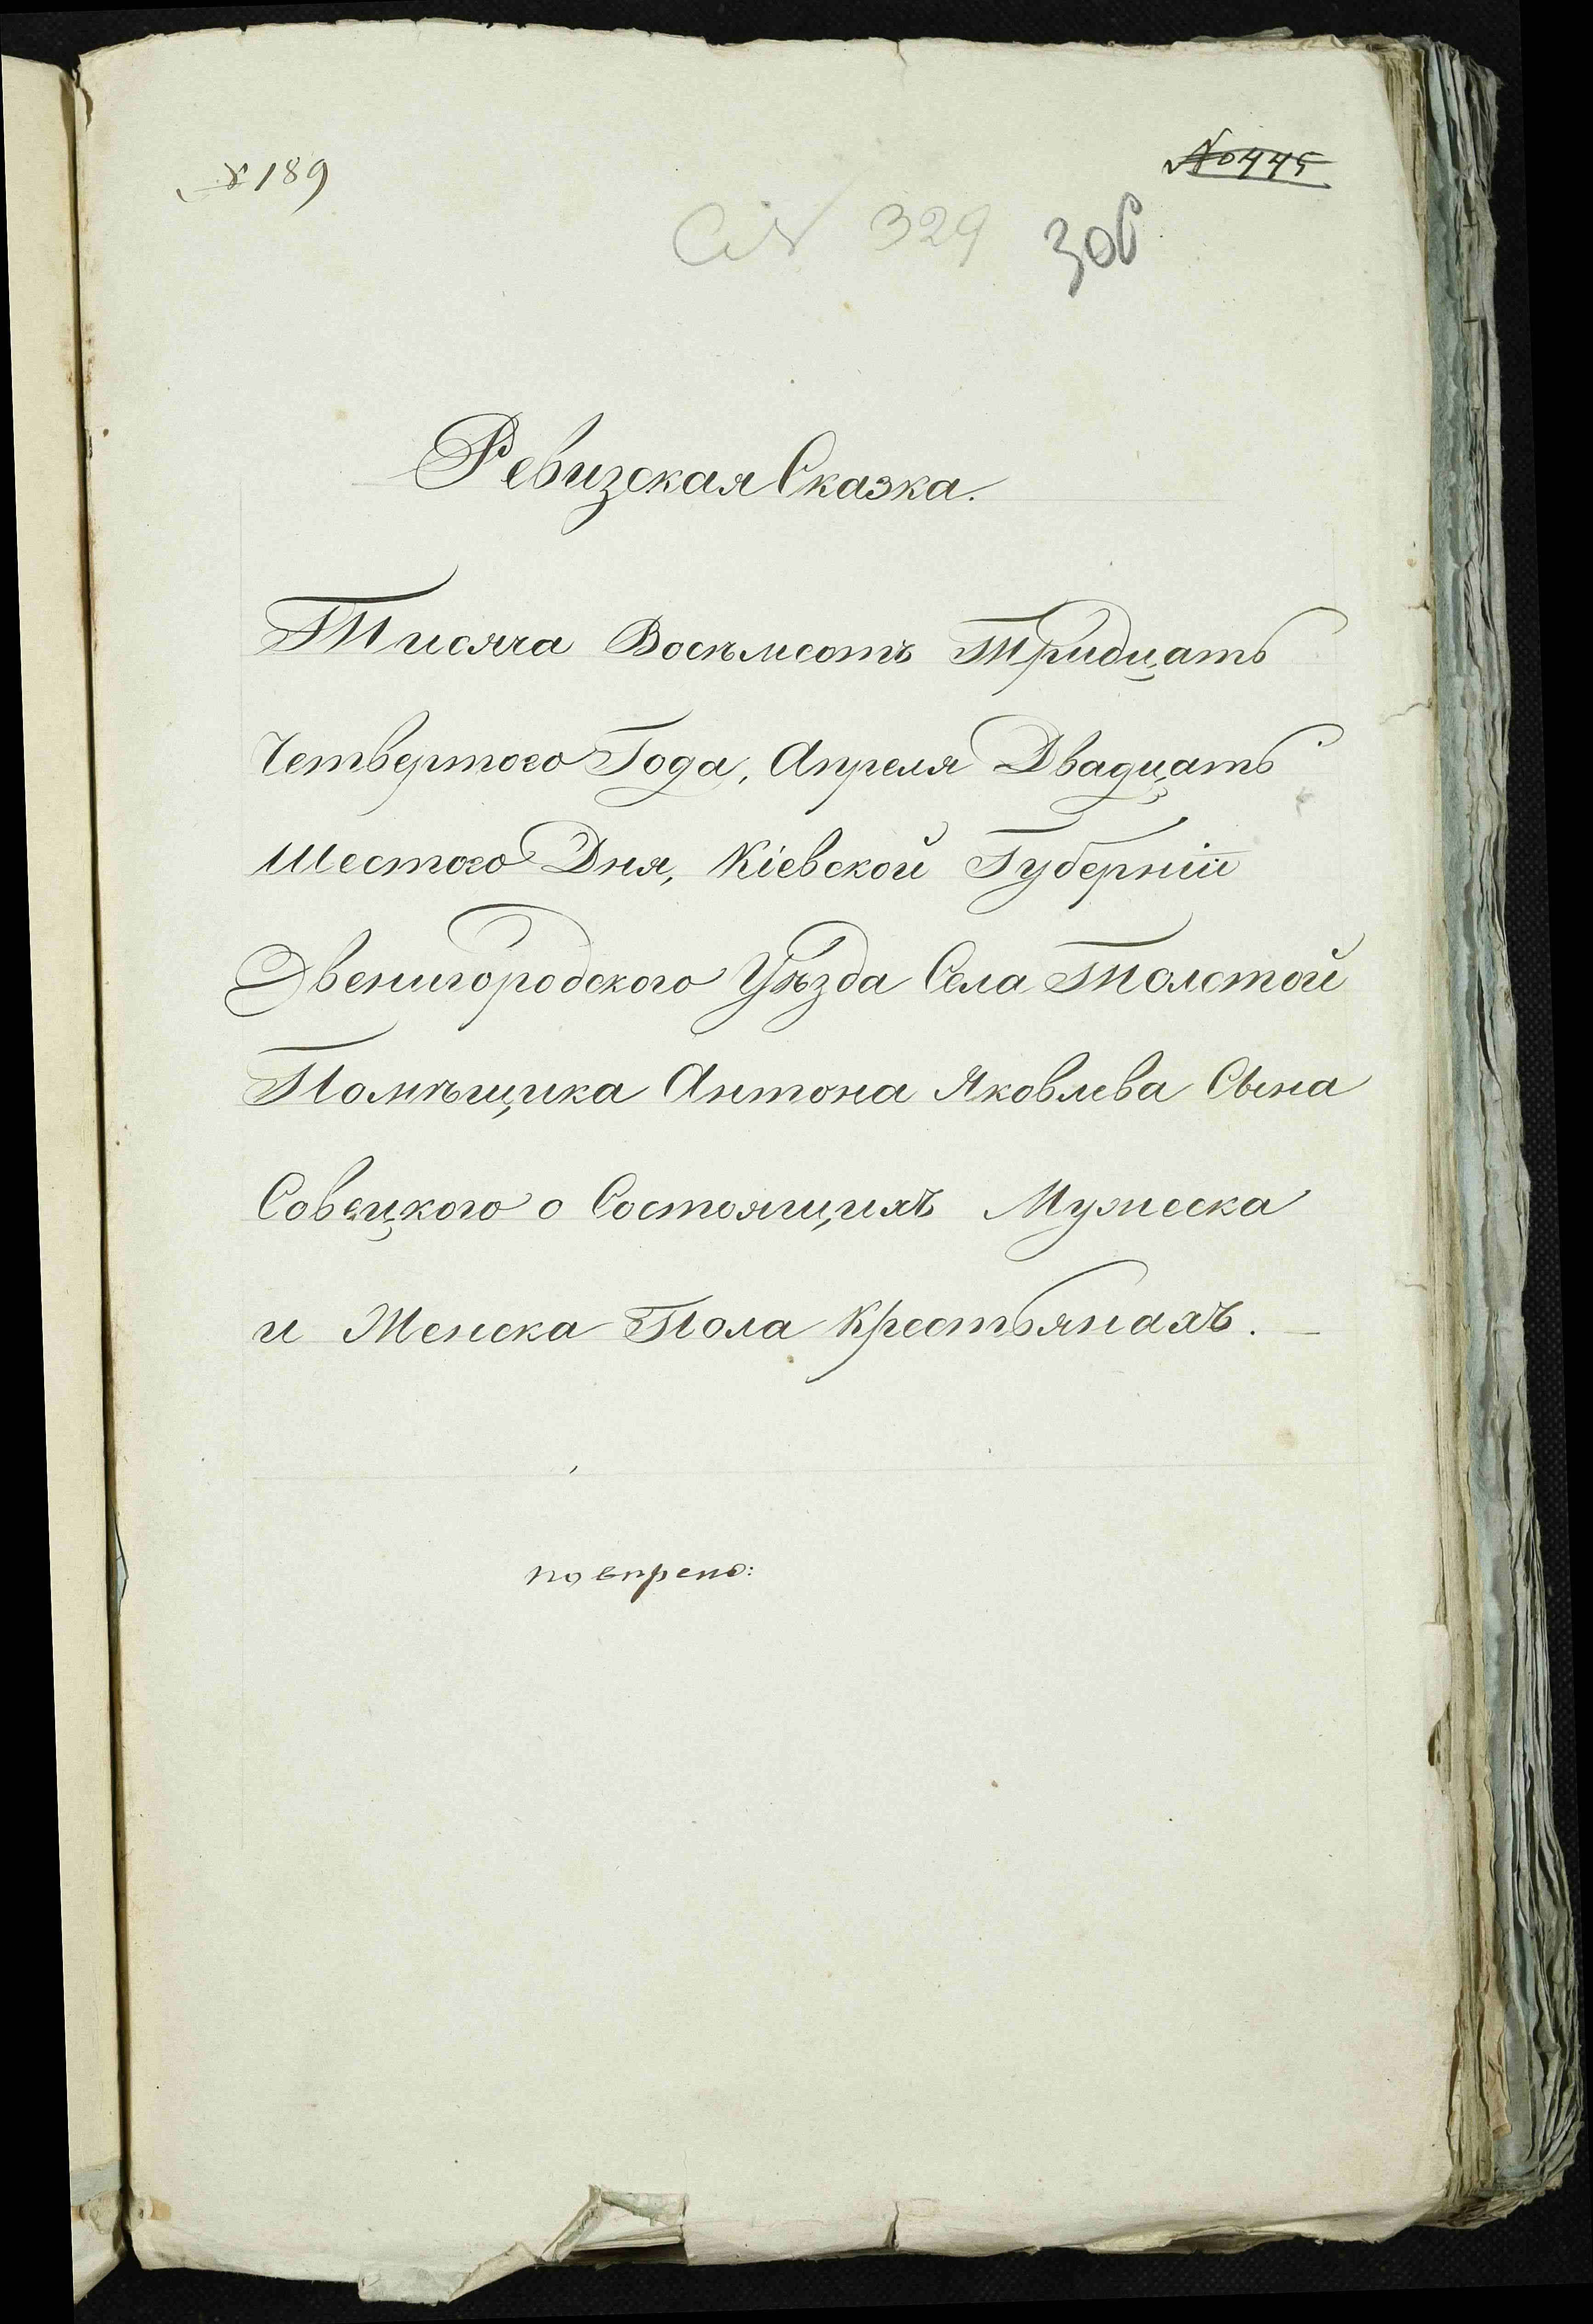 № 189
№ 445
329 306
Ревизская Сказка.
Тисяча Восѣмсотъ Тридцать
Четвертого Года, Апреля Двадцать
Шестого Дня, Кіевской Губерніи
Звенигородского Уѣзда Села Толстой
Помѣщика Антона Яковлева Сына
Совецкого о Состоящихъ Мужеска
и Женска Пола Крестьянахъ. —